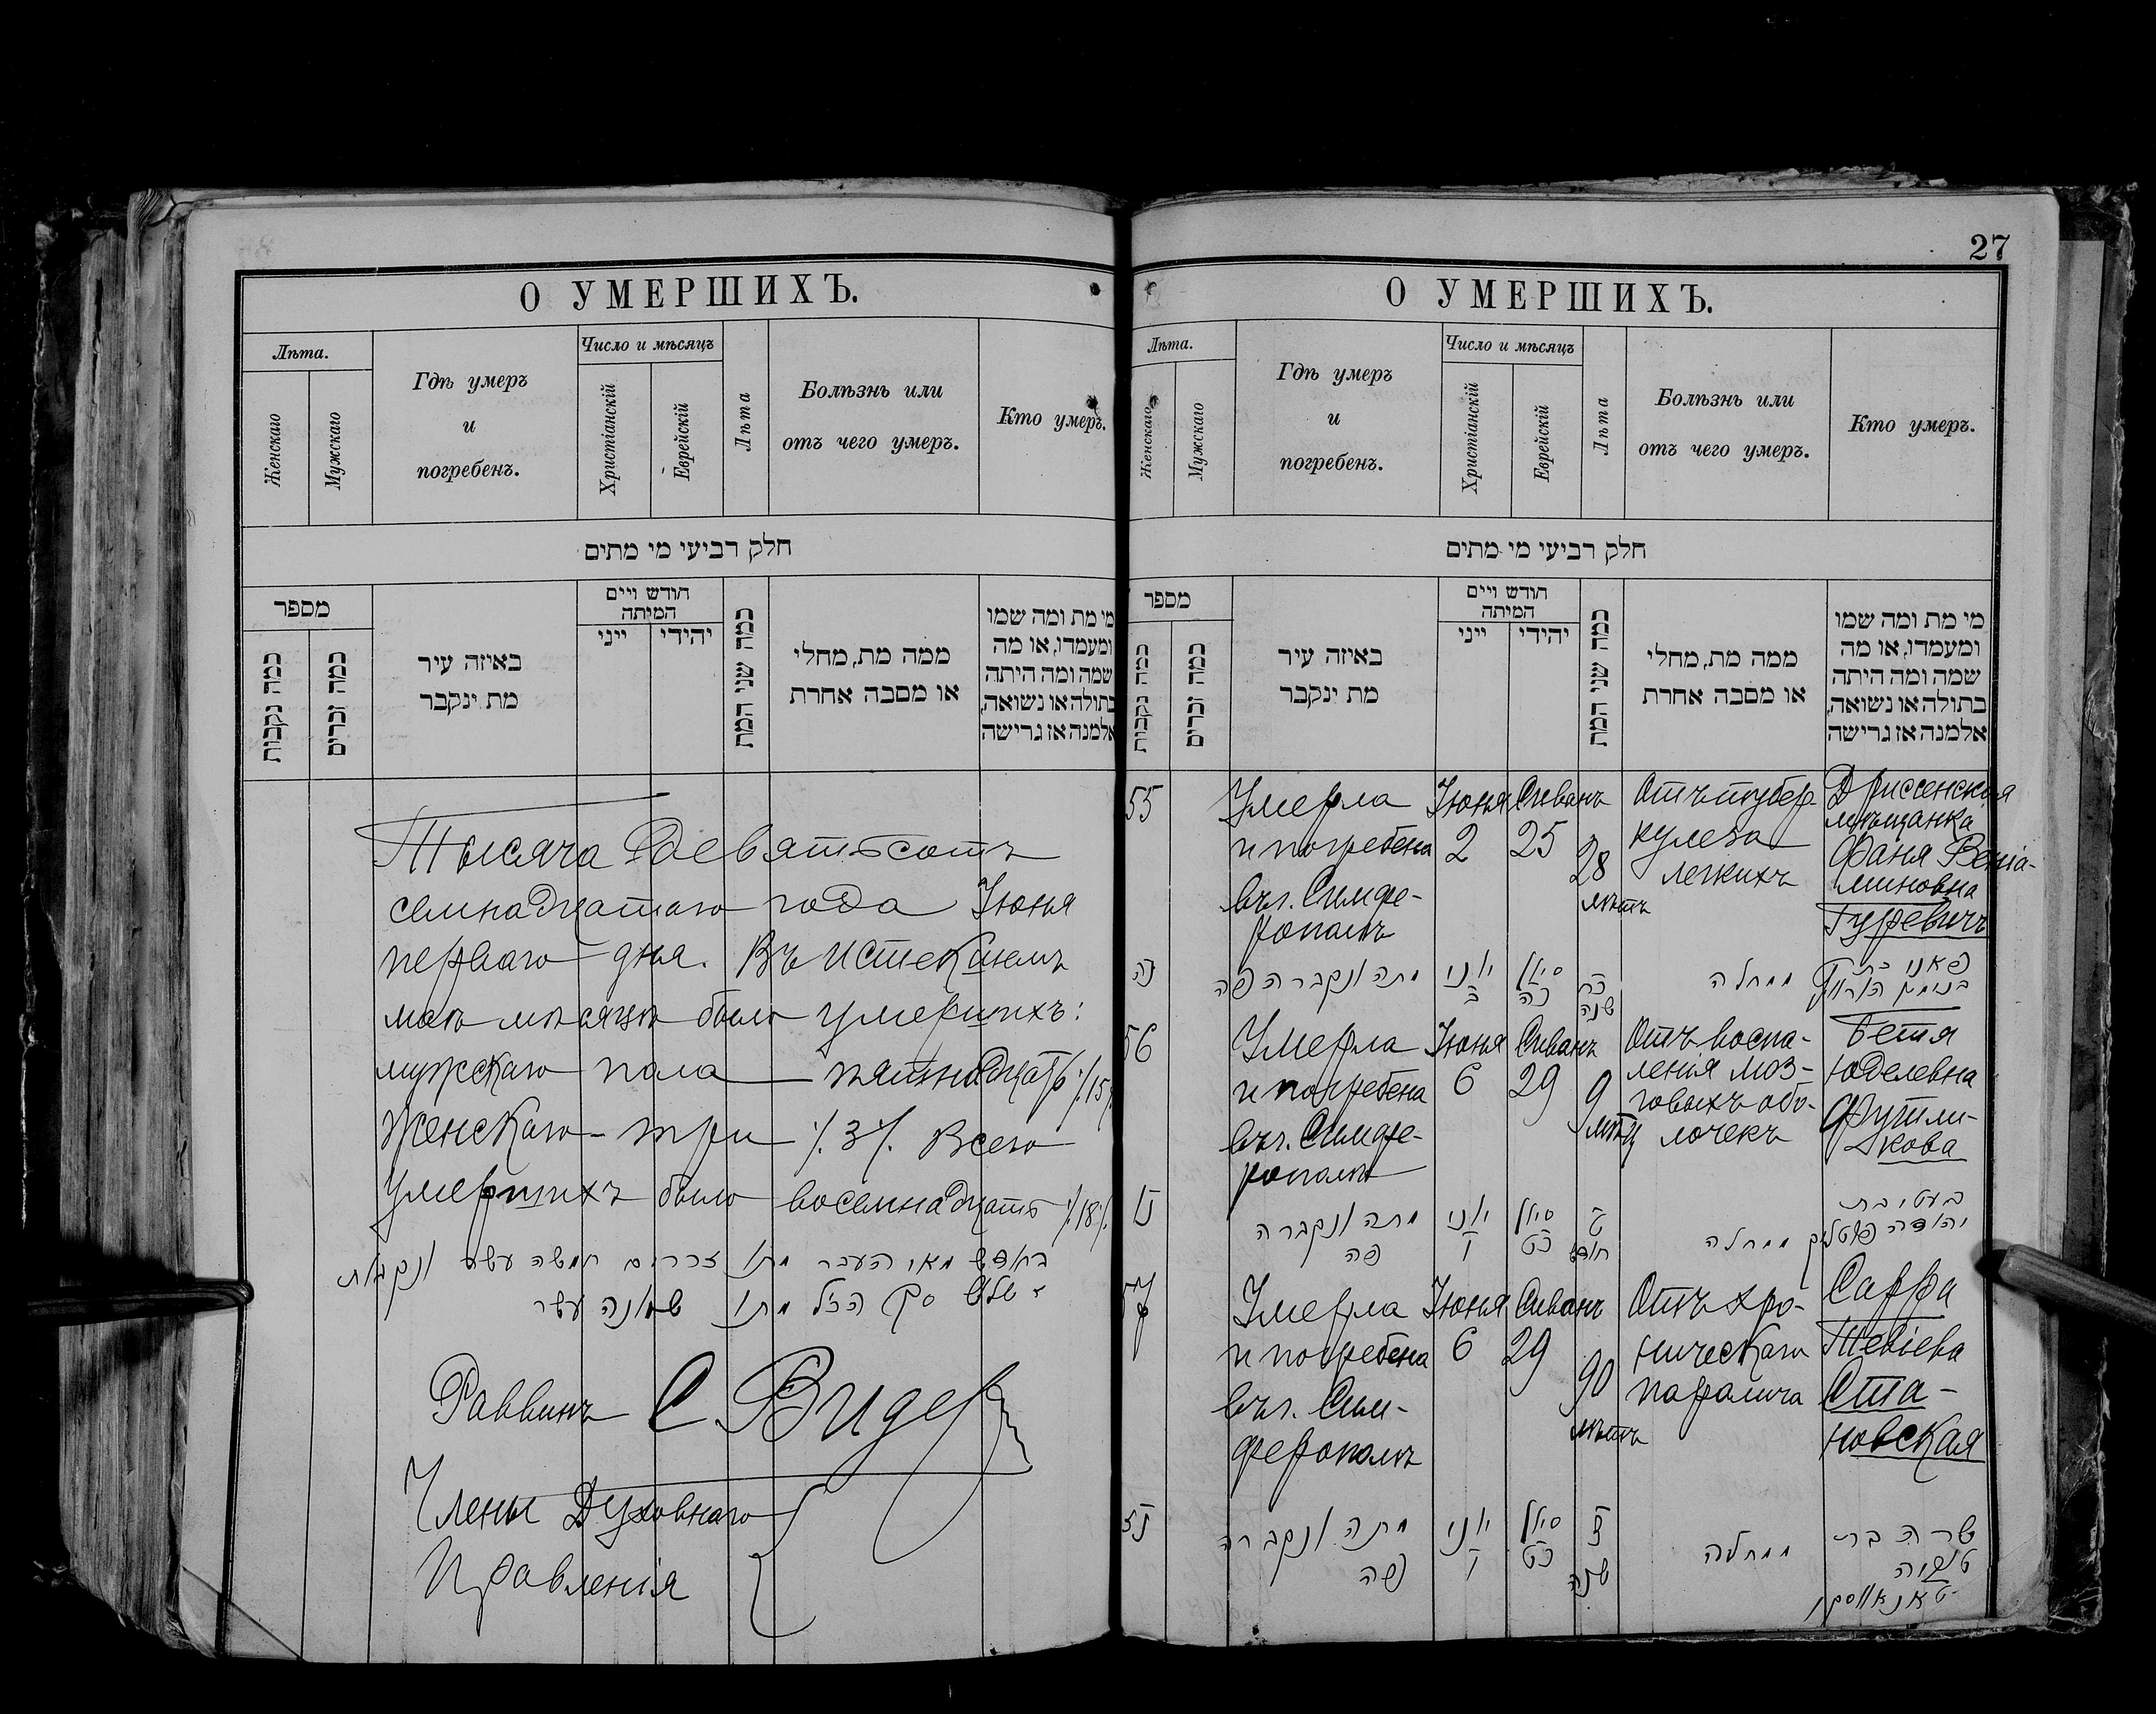 О УМЕРШИХЪ.
Лѣта.
Женскаго
Мужскаго
Гдѣ умеръ
и
погребенъ.
Число и мѣсяцъ
Христіанскій
Еврейскій
Лѣта
Болѣзнь или
отъ чего умеръ.
Кто умеръ.
חלק רביעי מי מתים
מספר
כמה נקבות
כמה זכרים
באיזה עיר
מת ינקבר
חודש ויים
המיתה
ייני
יהידי
כמה שני המת
ממה מת, מחלי
או מסבה אחרת
מי מת ומה שמו
ומעמדו, או מה
שמה ומה היתה
בתולה או נשואה,
אלמנה אז גרישה
Тысяча девятьсотъ
семнадцатаго года Іюня
перваго дня. Въ истекшемъ
маѣ мѣсяцѣ было умершихъ:
мужскаго пола пятнадцать ./.15/.
Женскаго - три ./.3/. Всего
умершихъ было восемнадцать ./.18/.
בחודש מאי העבר מתו זכרים חמשה עשר ונקבות
שלש סך הכל מתו שמונה עשר
Раввинъ С. Видер
Члены Духовнаго
Правленія
27
О УМЕРШИХЪ.
Лѣта.
Женскаго
Мужскаго
Гдѣ умеръ
и
погребенъ.
Число и мѣсяцъ
Христіанскій
Еврейскій
Лѣта
Болѣзнь или
отъ чего умеръ.
Кто умеръ.
חלק רביעי מי מתים
מספר
כמה נקבות
כמה זכרים
באיזה עיר
מת ינקבר
חודש ויים
המיתה
ייני
יהידי
כמה שני המת
ממה מת, מחלי
או מסבה אחרת
מי מת ומה שמו
ומעמדו, או מה
שמה ומה היתה
בתולה או נשואה,
אלמנה אז גרישה
55
Умерла
и погребена
въ г. Симфе-
рополѣ
Іюня
2
Сиванъ
25
28
лѣтъ
Отъ тубер-
кулеза
легкихъ
Дриссенская
мѣщанка
Фаня Веніа-
миновна
Гуревичъ
נה
מתה ונקברה פה
יוני
ב
סיון
כה
כח
שנה
ממחלה
פאני בת
56
Умерла
и погребена
въ г. Симфе-
рополѣ
Іюня
6
Сиванъ
29
9
мѣсяц
Отъ воспа-
ленія моз-
говыхъ обо-
лочекъ
Бетя
Юделевна
Футли-
кова
נו
מתה ונקברה
פה
יוני
ו
סיון
כט
ט
חודש
ממחלה
בעטי בת
יהודה
57
Умерла
и погребена
въ г. Сим-
ферополѣ
Іюня
6
Сиванъ
29
90
лѣтъ
Отъ хро-
ническаго
паралича
Сарра
Тевіева
Ста-
новская
נז
מתה ונקברה
פה
יוני
ו
סיון
כט
צ
שנה
ממחלה
שרה בת
טביה
סטאנאווסקי